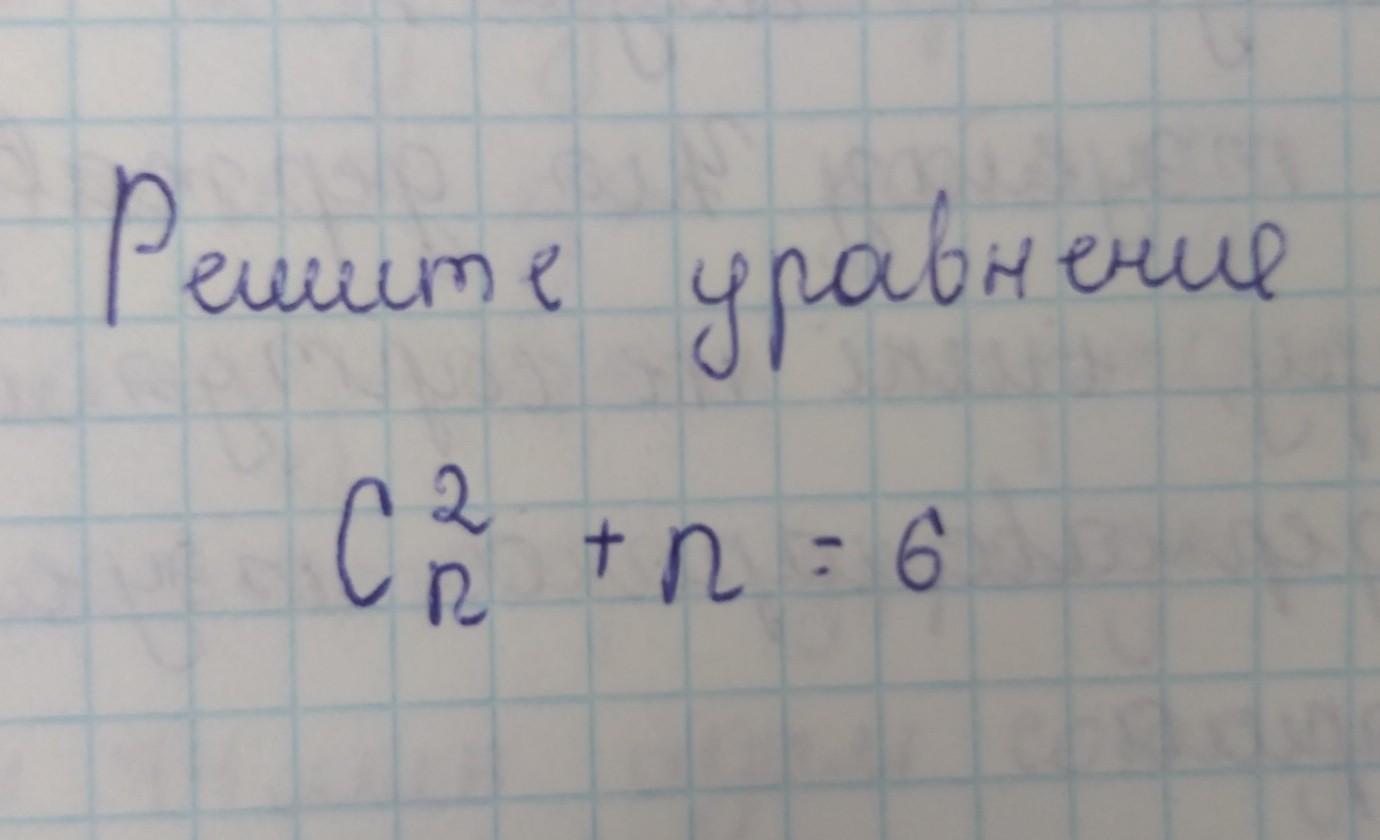 Решите уравнение
C²ₙ + n = 6